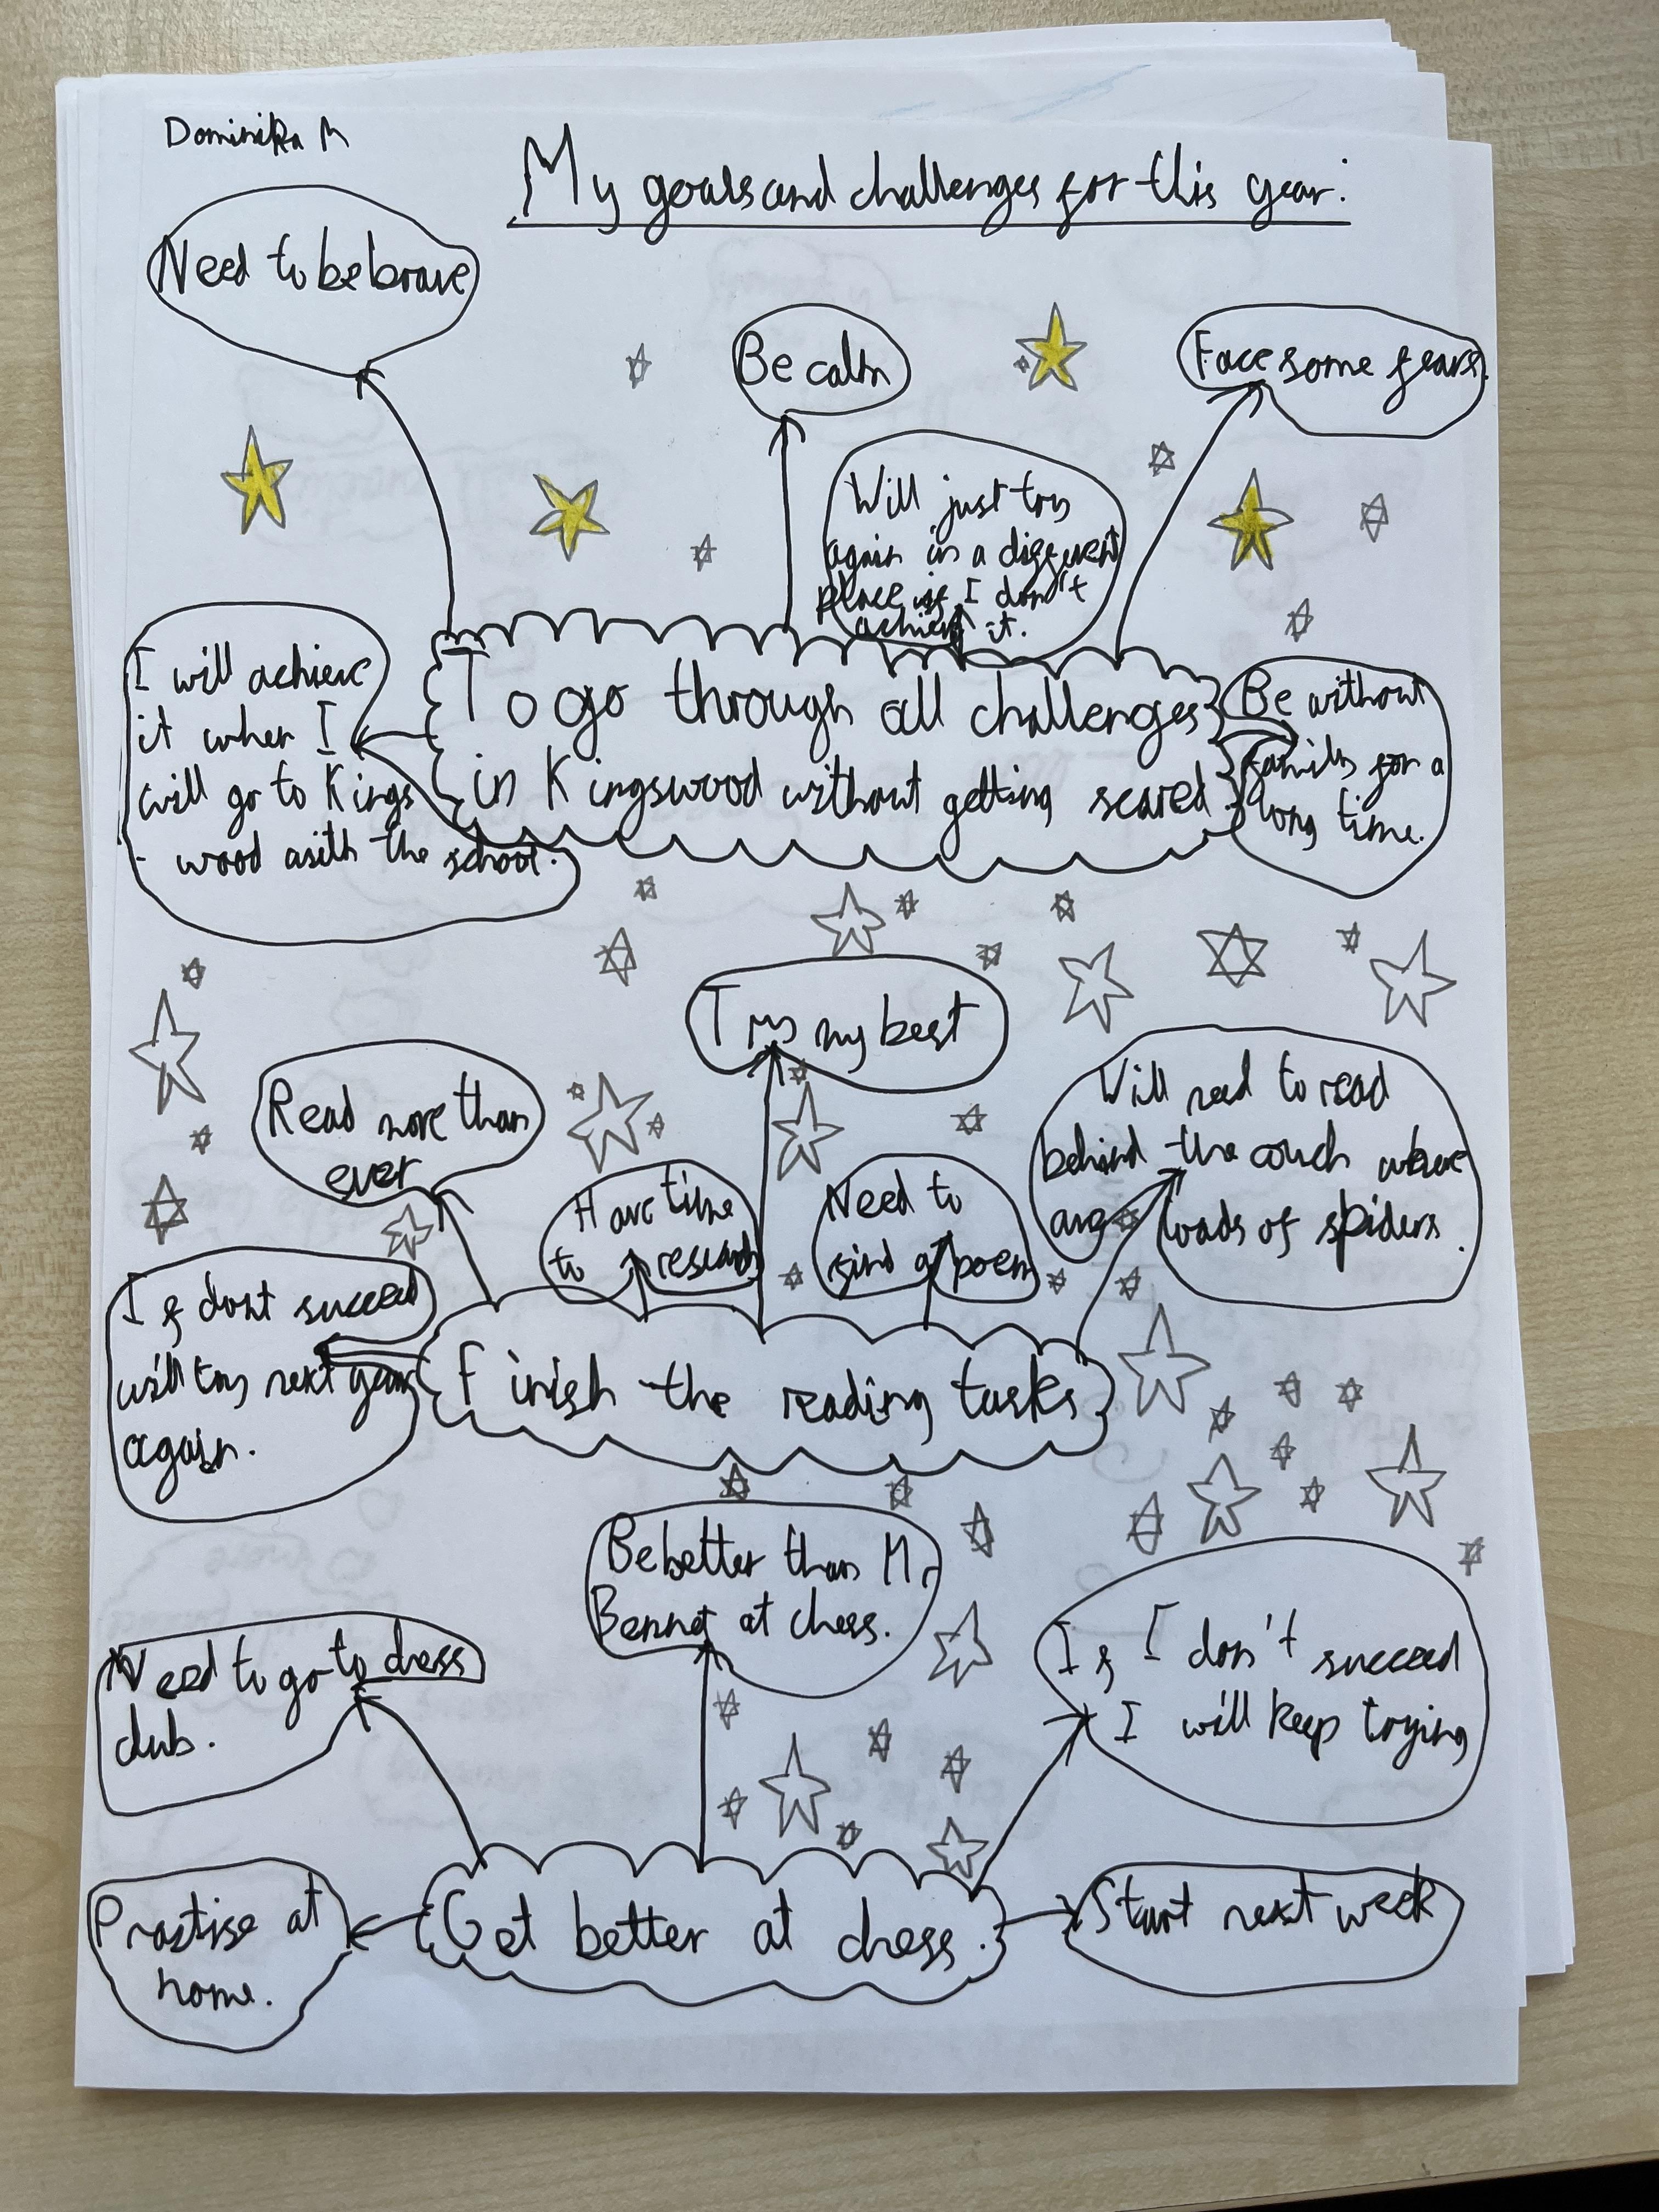 Dominika M
My goals and challenges for this year:
Need to be brave
Be calm
Face some fears.
Will just try
again in a different
place if I don't
achieve it.
I will achieve
it when I
will go to Kings
- wood with the school.
To go through all challenges
in Kingswood without getting scared
Be without
family for a
long time.
Try my best
Read more than
ever
Have time
to research
Need to
find a poem
Will need to read
behind the couch where
are loads of spiders.
If dont succeed
will try next year
again.
Finish the reading tasks
Be better than Mr
Bennet at chess.
Need to go to chess
club.
If I don't succeed
I will keep trying
Practise at
home.
Get better at chess.
Start next week